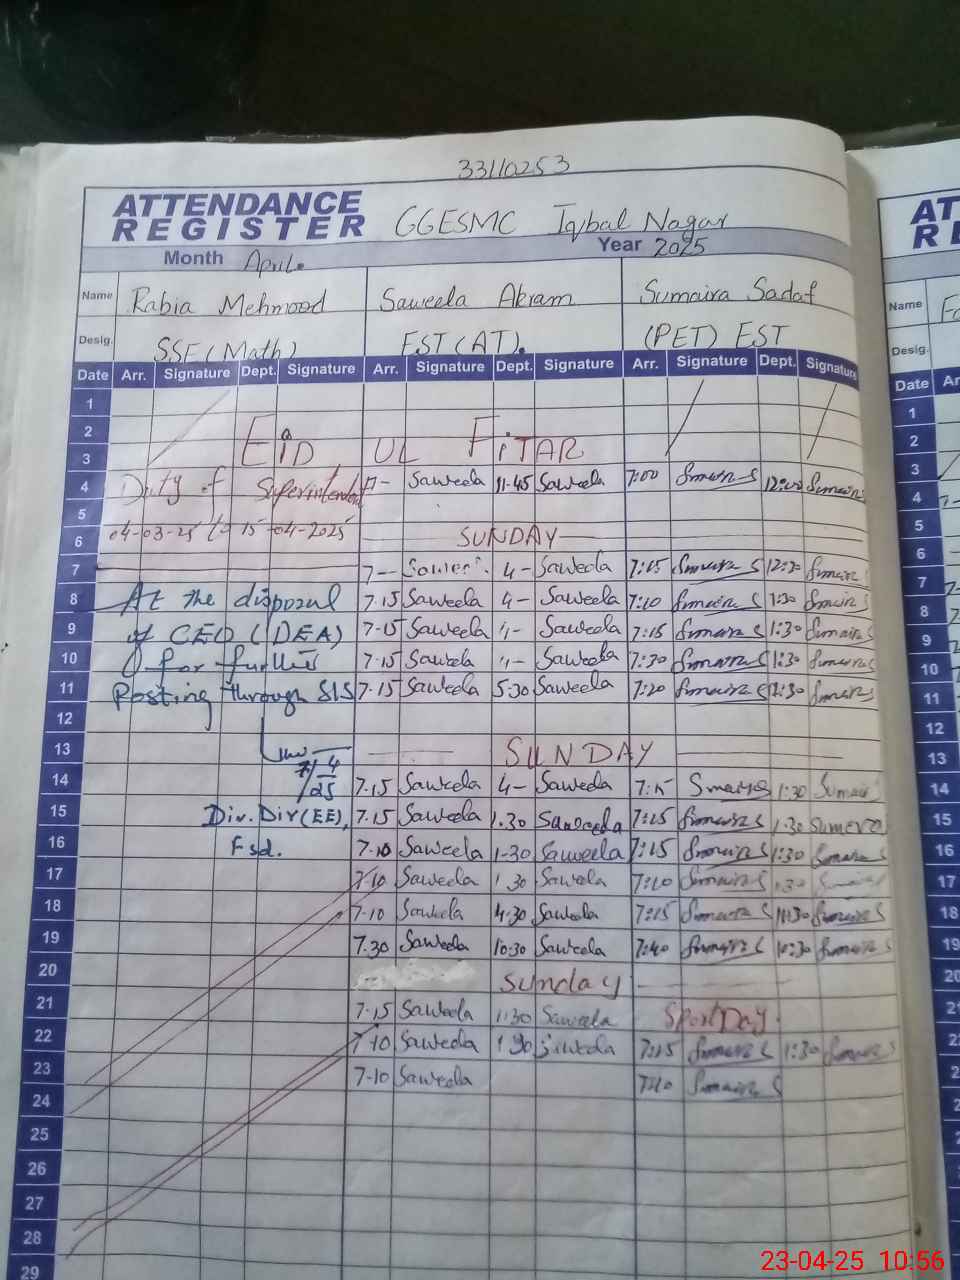 33110253
ATTENDANCE REGISTER GGESMC Iqbal Nagar
Month April. Year 2025
Name Rabia Mehmood Saweela Akram Sumaira Sadaf
Desig. SSE (Math) EST (AT). (PET) EST
Date Arr. Signature Dept. Signature Arr. Signature Dept. Signature Arr. Signature Dept. Signature
1
2
3 EiD UL FiTAR
4 Duty of Superintendent 7- Saweela 11-45 Saweela 7:00 Sumaira S 12:00 Sumaira
5
6 04-03-25 to 15-04-2025 SUNDAY
7 7- 4- Saweela 7:15 Sumaira S 12:30 Sumaira S
8 At the disposal 7.15 Saweela 4- Saweela 7:10 Sumaira S 1:30 Sumaira S
9 of CEO (DEA) 7-15 Saweela 4- Saweela 7:15 Sumaira S 1:30 Sumaira S
10 for further 7.15 Saweela 4- Saweela 7:30 Sumaira S 1:30 Sumaira S
11 Posting through SIS 7-15 Saweela 5-30 Saweela 7:20 Sumaira S 12:30 Sumaira S
12
13 SUNDAY
14 7/4/25 7.15 Saweela 4- Saweela 7:15 Sumaira S 1:30 Sumaira
15 Div. Dir (EE), 7.15 Saweela 1.30 Saweela 7:15 Sumaira S 1:30
16 Fsd. 7.10 Saweela 1-30 Saweela 7:15 Sumaira S 1:30 Sumaira S
17 7-10 Saweela 1.30 Saweela 7:10 Sumaira S 1:30 Sumaira S
18 7-10 Saweela 4.30 Saweela 7:15 Sumaira S Sumaira S
19 7.30 Saweela 10:30 Saweela 7:40 Sumaira S 10:30 Sumaira S
20 Sunday
21 7-15 Saweela 1:30 Saweela Sport Day
22 7-10 Saweela 1.30 Saweela 7:15 Sumaira S 1:30 Sumaira S
23 7-10 Saweela 7:10 Sumaira S
24
25
26
27
28
29
AT
RE
Name
Desig.
Date Ar
1
2
3
4
5
6
7
8
9
10
11
12
13
14
15
16
17
18
19
20
21
23-04-25 10:56